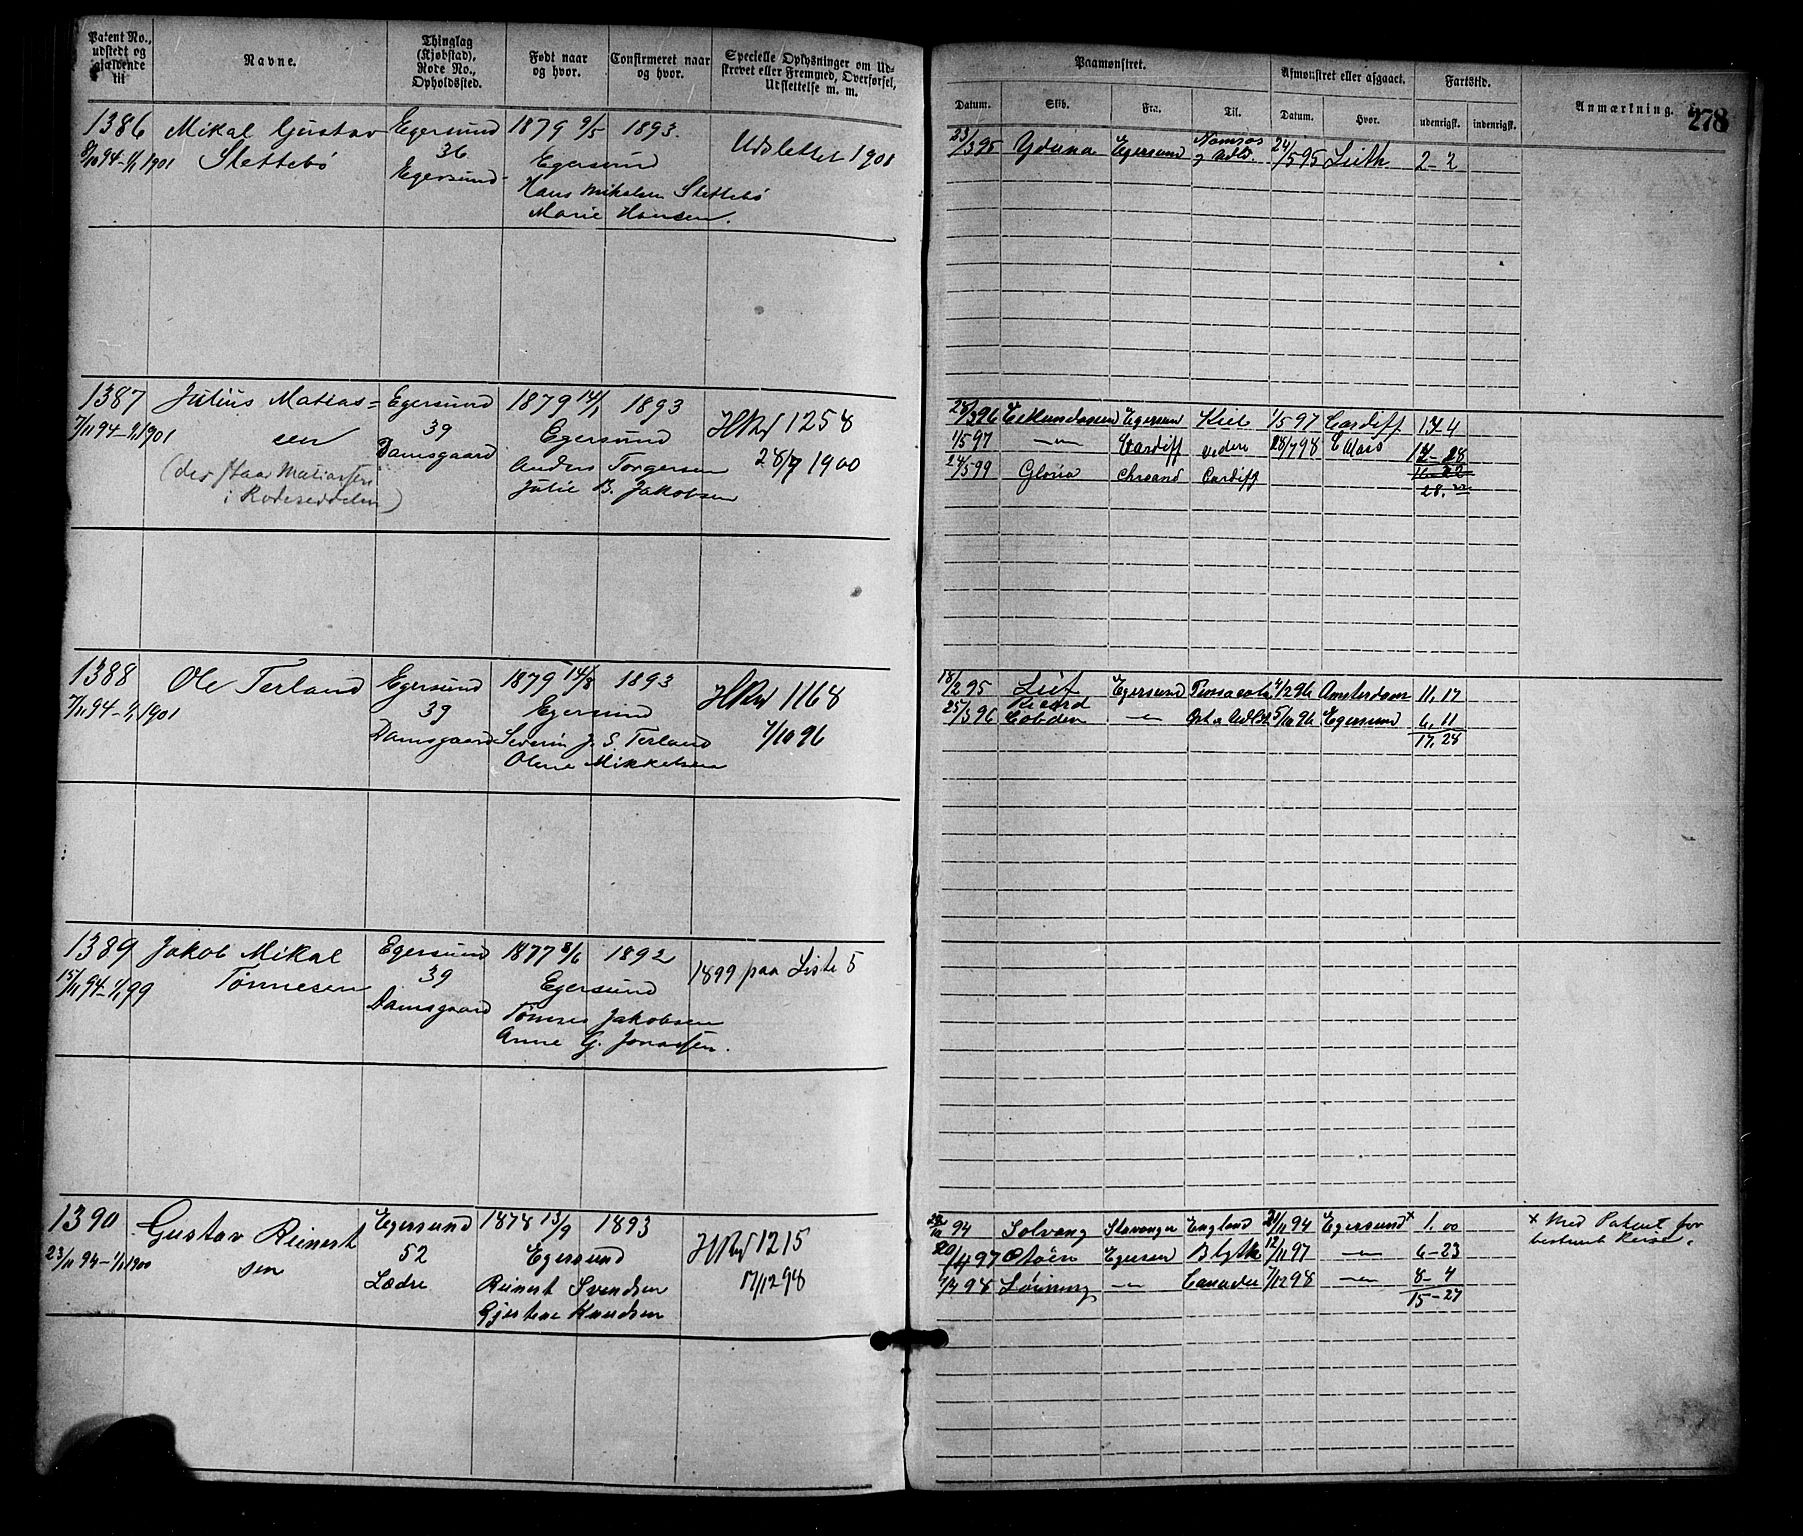 Patent No., udstedt og gjældende til
Navne.
Thinglag (Kjøbstad), Rode No., Opholdssted.
Født naar og hvor.
Confirmeret naar og hvor.
Specielle Oplysninger om Udskrevet eller Fremmed, Overførsel, Udslettelse m. m.
Paamønstret.
Datum.
Skib.
Fra.
Til.
Afmønstret eller afgaaet.
Datum.
Hvor.
Fartstid.
udenrigsk.
indenrigsk.
Anmærkning.
278
1386 Mikal Gustav Egersund 1879 9/5 1893. Udslettet 1901
8/10 94-1/1 1901 Slettebø 36 Egersund
Egersund Hans Mikalsen Slettebø
Marie Hansen.
23/3 95 Yduna Egersund Namsos 24/5 95 Leith 2-2
og Udld.
1387 Julius Matias- Egersund 1879 14/1 1893 1258
7/11 94-1/1 1901 sen 39 Egersund 28/7 1900
Damsgaard Anders Torgersen
(der staar Matiassen Julie B. Jakobsen
i Rodeseddelen)
28/3 96 Egersund Kiel 1/5 97 Cardiff 13-4
1/5 97 -"- Cardiff videre 28/7 98
24/5 99 Gloria Chrsand Cardiff
1388 Ole Terland Egersund 1879 14/8 1893 1168
7/11 94-1/1 1901 39 Egersund 7/10 96
Damsgaard Severin J. S. Terland
Olene Mikkelsen
18/2 95 Leif Egersund Pensacola 4/2 96 Amsterdam 11,17
Ricard
25/3 96 Cobden -"- 5/10 96 Egersund 6,11
17,28
1389 Jakob Mikal Egersund 1877 8/6 1892 1899 paa Liste 5
15/11 94-1/1 99 Tönnesen 39 Egersund
Damsgaard Tönnes Jakobsen
Anne G. Jonassen.
1390 Gustav Reinert Egersund 1878 13/9 1893 1215
23/11 94-1/1 1900 sen 52 Egersund 17/12 98
Lædre Reinert Svendsen
Gjertine Knudsen
94 Solvang Stavanger England 21/11 94 Egersund x 1.00 x Med Patent for
bestemt Reise.
20/4 97 Egersun Blyth 12/11 97 -"- 6-23
4/4 98 -"- Canada 7/12 98 -"- 8-4
15-27